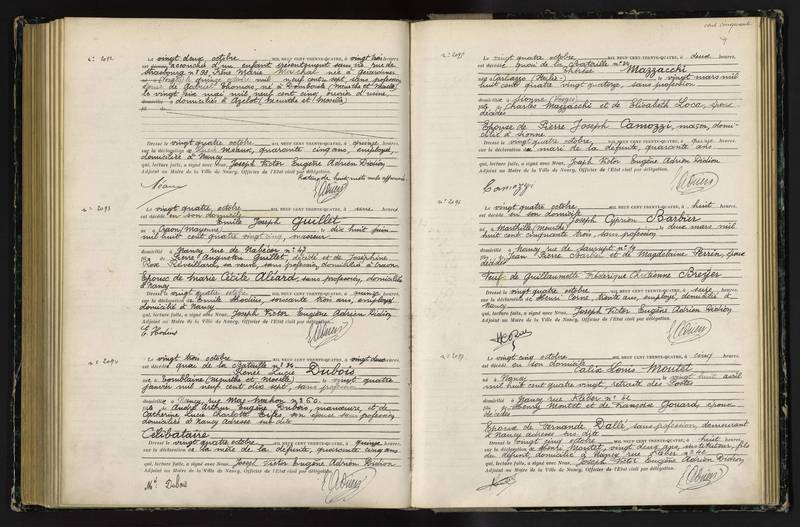 Le vingt deux octobre MIL NEUF CENT TRENTE-QUATRE, à vingt trois heures,
est accouchée d'un enfant présentement sans vie rue de
Strasbourg n° 38, Irène Marie
quinze octobre mil neuf cent sept, sans profession
de Gabriel Thomas, né à Dombasle (Meurthe et Moselle)
le vingt mai mil neuf cent cinq, ouvrier d'usine,
domiciliés à Azelot (Meurthe et Moselle)
Dressé le vingt quatre octobre MIL NEUF CENT TRENTE-QUATRE, à quinze heures,
sur la déclaration de quarante cinq ans, employé,
domicilié à Nancy
qui, lecture faite, a signé avec Nous, Joseph Victor Eugène Adrien Didion
Adjoint au Maire de la Ville de Nancy, Officier de l'Etat civil par délégation.
n° 2093
Le vingt quatre octobre MIL NEUF CENT TRENTE-QUATRE, à heures,
est décédé en son domicile
Emile Joseph Guillet
né à Craon (Mayenne) le dix huit juin
mil huit cent quatre vingt cinq, masseur
domicilié à Nancy rue de Nabécor n° 47
fils de Pierre Augustin Guillet, décédé et de Joséphine
Rose sa veuve, sans profession, domiciliée à Craon
Epoux de Marie Cécile Aléard, sans profession, domiciliée
à Nancy
Dressé le vingt quatre octobre MIL NEUF CENT TRENTE-QUATRE, à quinze heures,
sur la déclaration de Emile Hoclins, soixante trois ans, employé,
domicilié à Nancy
qui, lecture faite, a signé avec Nous, Joseph Victor Eugène Adrien Didion
Adjoint au Maire de la Ville de Nancy, Officier de l'Etat civil par délégation.
n° 2094
Le vingt trois octobre MIL NEUF CENT TRENTE-QUATRE, à vingt deux heures,
est décédée quai de la Bataille n° 34
Renée Lucie Dubois
née à Tomblaine (Meurthe et Moselle) le vingt quatre
janvier mil neuf cent dix sept, sans profession
domiciliée à Nancy, rue Mac-Mahon n° 60
fille de André Arthur Eugène Dubois, manoeuvre, et de
Catherine Lucie Charlotte son épouse sans profession
domiciliés à Nancy adresse sus-dite
Célibataire
Dressé le vingt quatre octobre MIL NEUF CENT TRENTE-QUATRE, à quinze heures,
sur la déclaration de la mère de la défunte, quarante cinq ans
qui, lecture faite, a signé avec Nous, Joseph Victor Eugène Adrien Didion
Adjoint au Maire de la Ville de Nancy, Officier de l'Etat civil par délégation.
Mme Dubois
n° 2095
Le vingt quatre octobre MIL NEUF CENT TRENTE-QUATRE, à deux heures,
est décédée quai de la Bataille n° 34
Thérèse Mazzacchi
le vingt mars mil
huit cent quatre vingt quatorze, sans profession
domiciliée à Sionne (Vosges)
fille de Charles Mazzacchi et de Elisabeth Loca, époux
décédés
Epouse de Pierre Joseph Camozzi, maçon, domi-
cilié à Sionne
Dressé le vingt quatre octobre MIL NEUF CENT TRENTE-QUATRE, à quinze heures,
sur la déclaration du mari de la défunte, quarante ans
qui, lecture faite, a signé avec Nous, Joseph Victor Eugène Adrien Didion
Adjoint au Maire de la Ville de Nancy, Officier de l'Etat civil par délégation.
Camozzi
n° 2096
Le vingt quatre octobre MIL NEUF CENT TRENTE-QUATRE, à huit heures,
est décédé en son domicile
Joseph Cyprien Barbier
né à Marthille (Meurthe) le deux mars mil
huit cent cinquante trois, sans profession
domicilié à Nancy rue de Saurupt n° 19
fils de Jean Pierre Barbier et de Magdelaine Perrin, époux
décédés
Veuf de Guillaumette Frédérique Chrétienne Breyer
Dressé le vingt quatre octobre MIL NEUF CENT TRENTE-QUATRE, à seize heures,
sur la déclaration de Henri Corne, trente ans, employé, domicilié à
Nancy
qui, lecture faite, a signé avec Nous, Joseph Victor Eugène Adrien Didion
Adjoint au Maire de la Ville de Nancy, Officier de l'Etat civil par délégation.
n° 2097
Le vingt cinq octobre MIL NEUF CENT TRENTE-QUATRE, à cinq heures,
est décédé en son domicile
Calix Louis Moutet
né à Nancy le vingt huit avril
mil huit cent quatre vingt, retraité des Postes
domicilié à Nancy rue Kléber n° 42
fils de Henry Moutet et de Françoise Gouard, époux
décédés
Epoux de Fernande Dallé, sans profession, demeurant
à Nancy adresse sus-dite
Dressé le vingt cinq octobre MIL NEUF CENT TRENTE-QUATRE, à huit heures,
sur la déclaration de Henri Moutet, vingt deux ans, instituteur, fils
du défunt, domicilié à Nancy rue Kléber n° 42
qui, lecture faite, a signé avec Nous, Joseph Victor Eugène Adrien Didion
Adjoint au Maire de la Ville de Nancy, Officier de l'Etat civil par délégation.